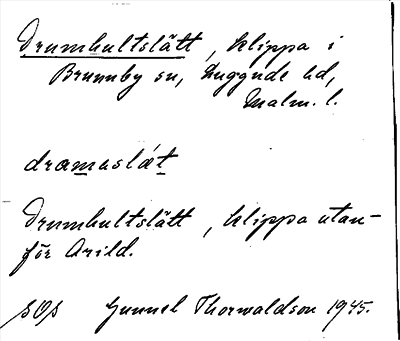 Drumhultslätt, klippa i
Brunnby sn, Luggude hd,
Malm. l.
dramuslät
Drumhultslätt, klippa utan-
för Arild.
SOS Gunnel Thorwaldson 1945.